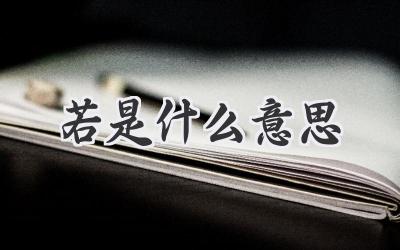 若是什么意思